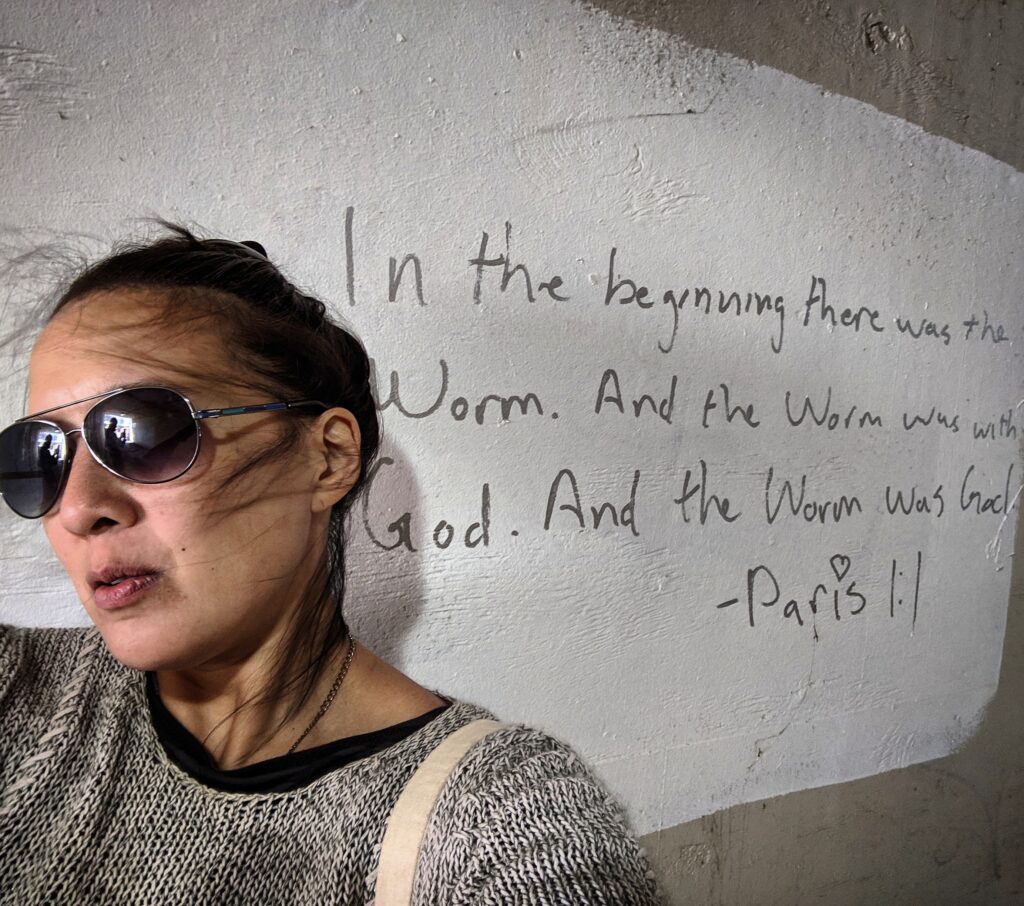 In the beginning there was the
Worm. And the Worm was with
God. And the Worm was God.
-Paris 1:1